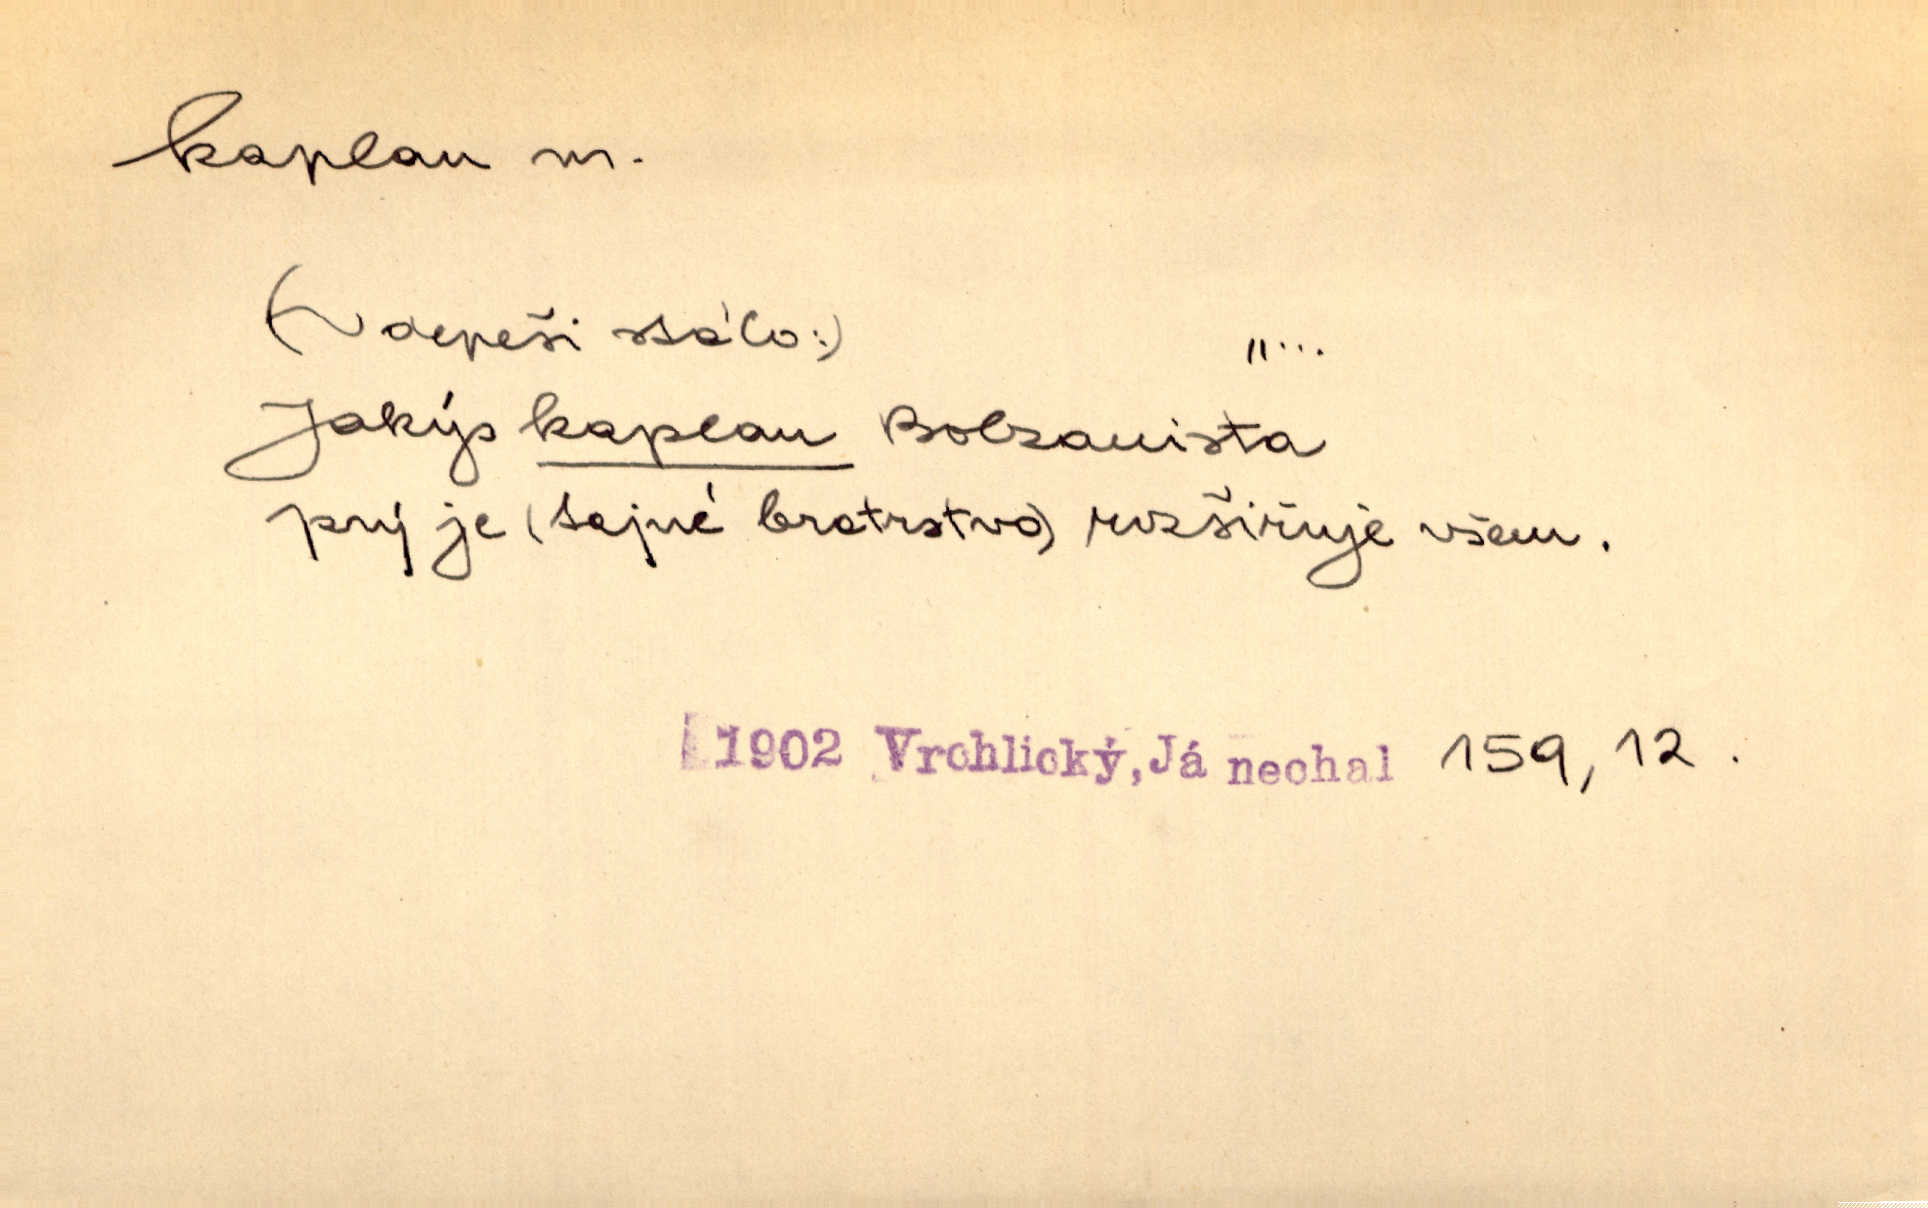 kaplan m.
(V depeši stálo:) „...
Jakýs kaplan Bolzanista
prý je (tajné bratrstvo) rozšiřuje všem.
1902 Vrchlický, Já nechal 159, 12.